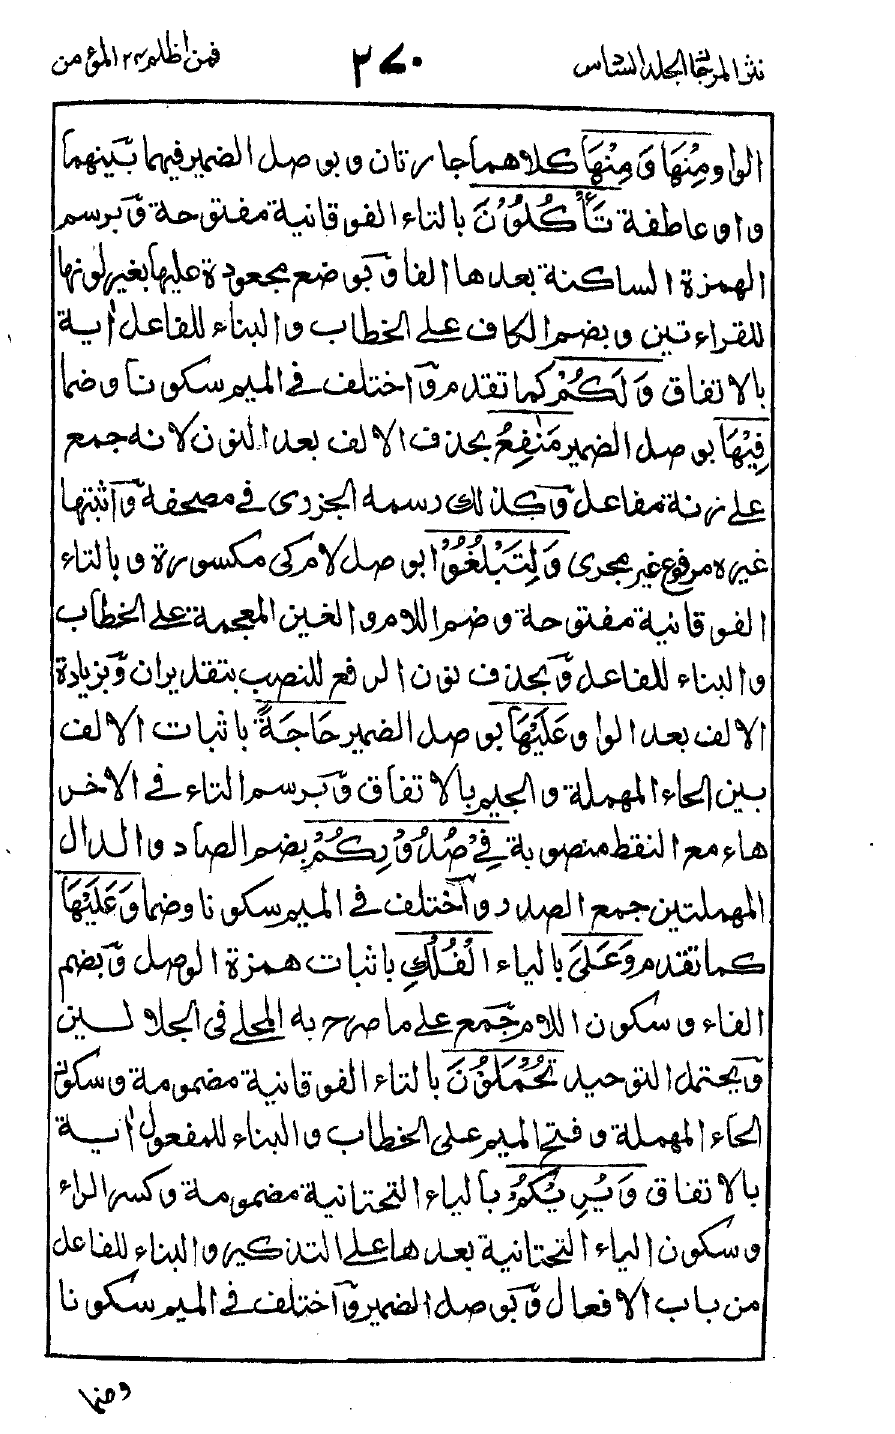 نثر المرجان الجلد السادس
٢٧٠
فمن اظلم ٢٤ المؤمن
الواو ومِنْهَا وَمِنْهَا كلاهما جارتان وبوصل الضمير فيهما بينهما
واو عاطفة تَأْكُلُوْنَ بالتاء الفوقانية مفتوحة وَبرسم
الهمزة الساكنة بعدها الفا وَبوضع مجعودة عليها بغير لونها
للقراءتين وبضم الكاف على الخطاب والبناء للفاعل اٰية
بالاتفاق وَلَكُمْ كما تقدم وَاختلف في الميم سكونا وضما
فِيْهَا بوصل الضمير مَنٰفِعُ بحذف الالف بعد النون لانه جمع
على زنة مفاعل وَكذلك رسمه الجزري في مصحفه وَاثبتها
غيره مرفوع غير مجرى وَلِتَبْلُغُوْا بوصل لام كي مكسورة وبالتاء
الفوقانية مفتوحة وضم اللام والغين المعجمة على الخطاب
والبناء للفاعل وَبحذف نون الرفع للنصب بتقدير ان وَبزيادة
الالف بعد الواو عَلَيْهَا بوصل الضمير حَاجَةً باثبات الالف
بين الحاء المهملة والجيم بالاتفاق وَبرسم التاء في الاخر
هاء مع النقط منصوبة فِيْ صُدُوْرِكُمْ بضم الصاد والدال
المهملتين جمع الصدر وَاختلف في الميم سكونا وضما وَعَلَيْهَا
كما تقدم وَعَلَى بالياء الْفُلْكِ باثبات همزة الوصل وَبضم
الفاء وسكون اللام جَمع على ما صرح به المحلي في الجلالين
وَيحتمل التوحيد تُحْمَلُوْنَ بالتاء الفوقانية مضمومة وسكون
الحاء المهملة وفتح الميم على الخطاب والبناء للمفعول اٰية
بالاتفاق وَيُرِيْكُمْ بالياء التحتانية مضمومة وكسر الراء
وسكون الياء التحتانية بعدها على التذكير والبناء للفاعل
من باب الافعال وَبوصل الضمير وَاختلف في الميم سكونا
وضما